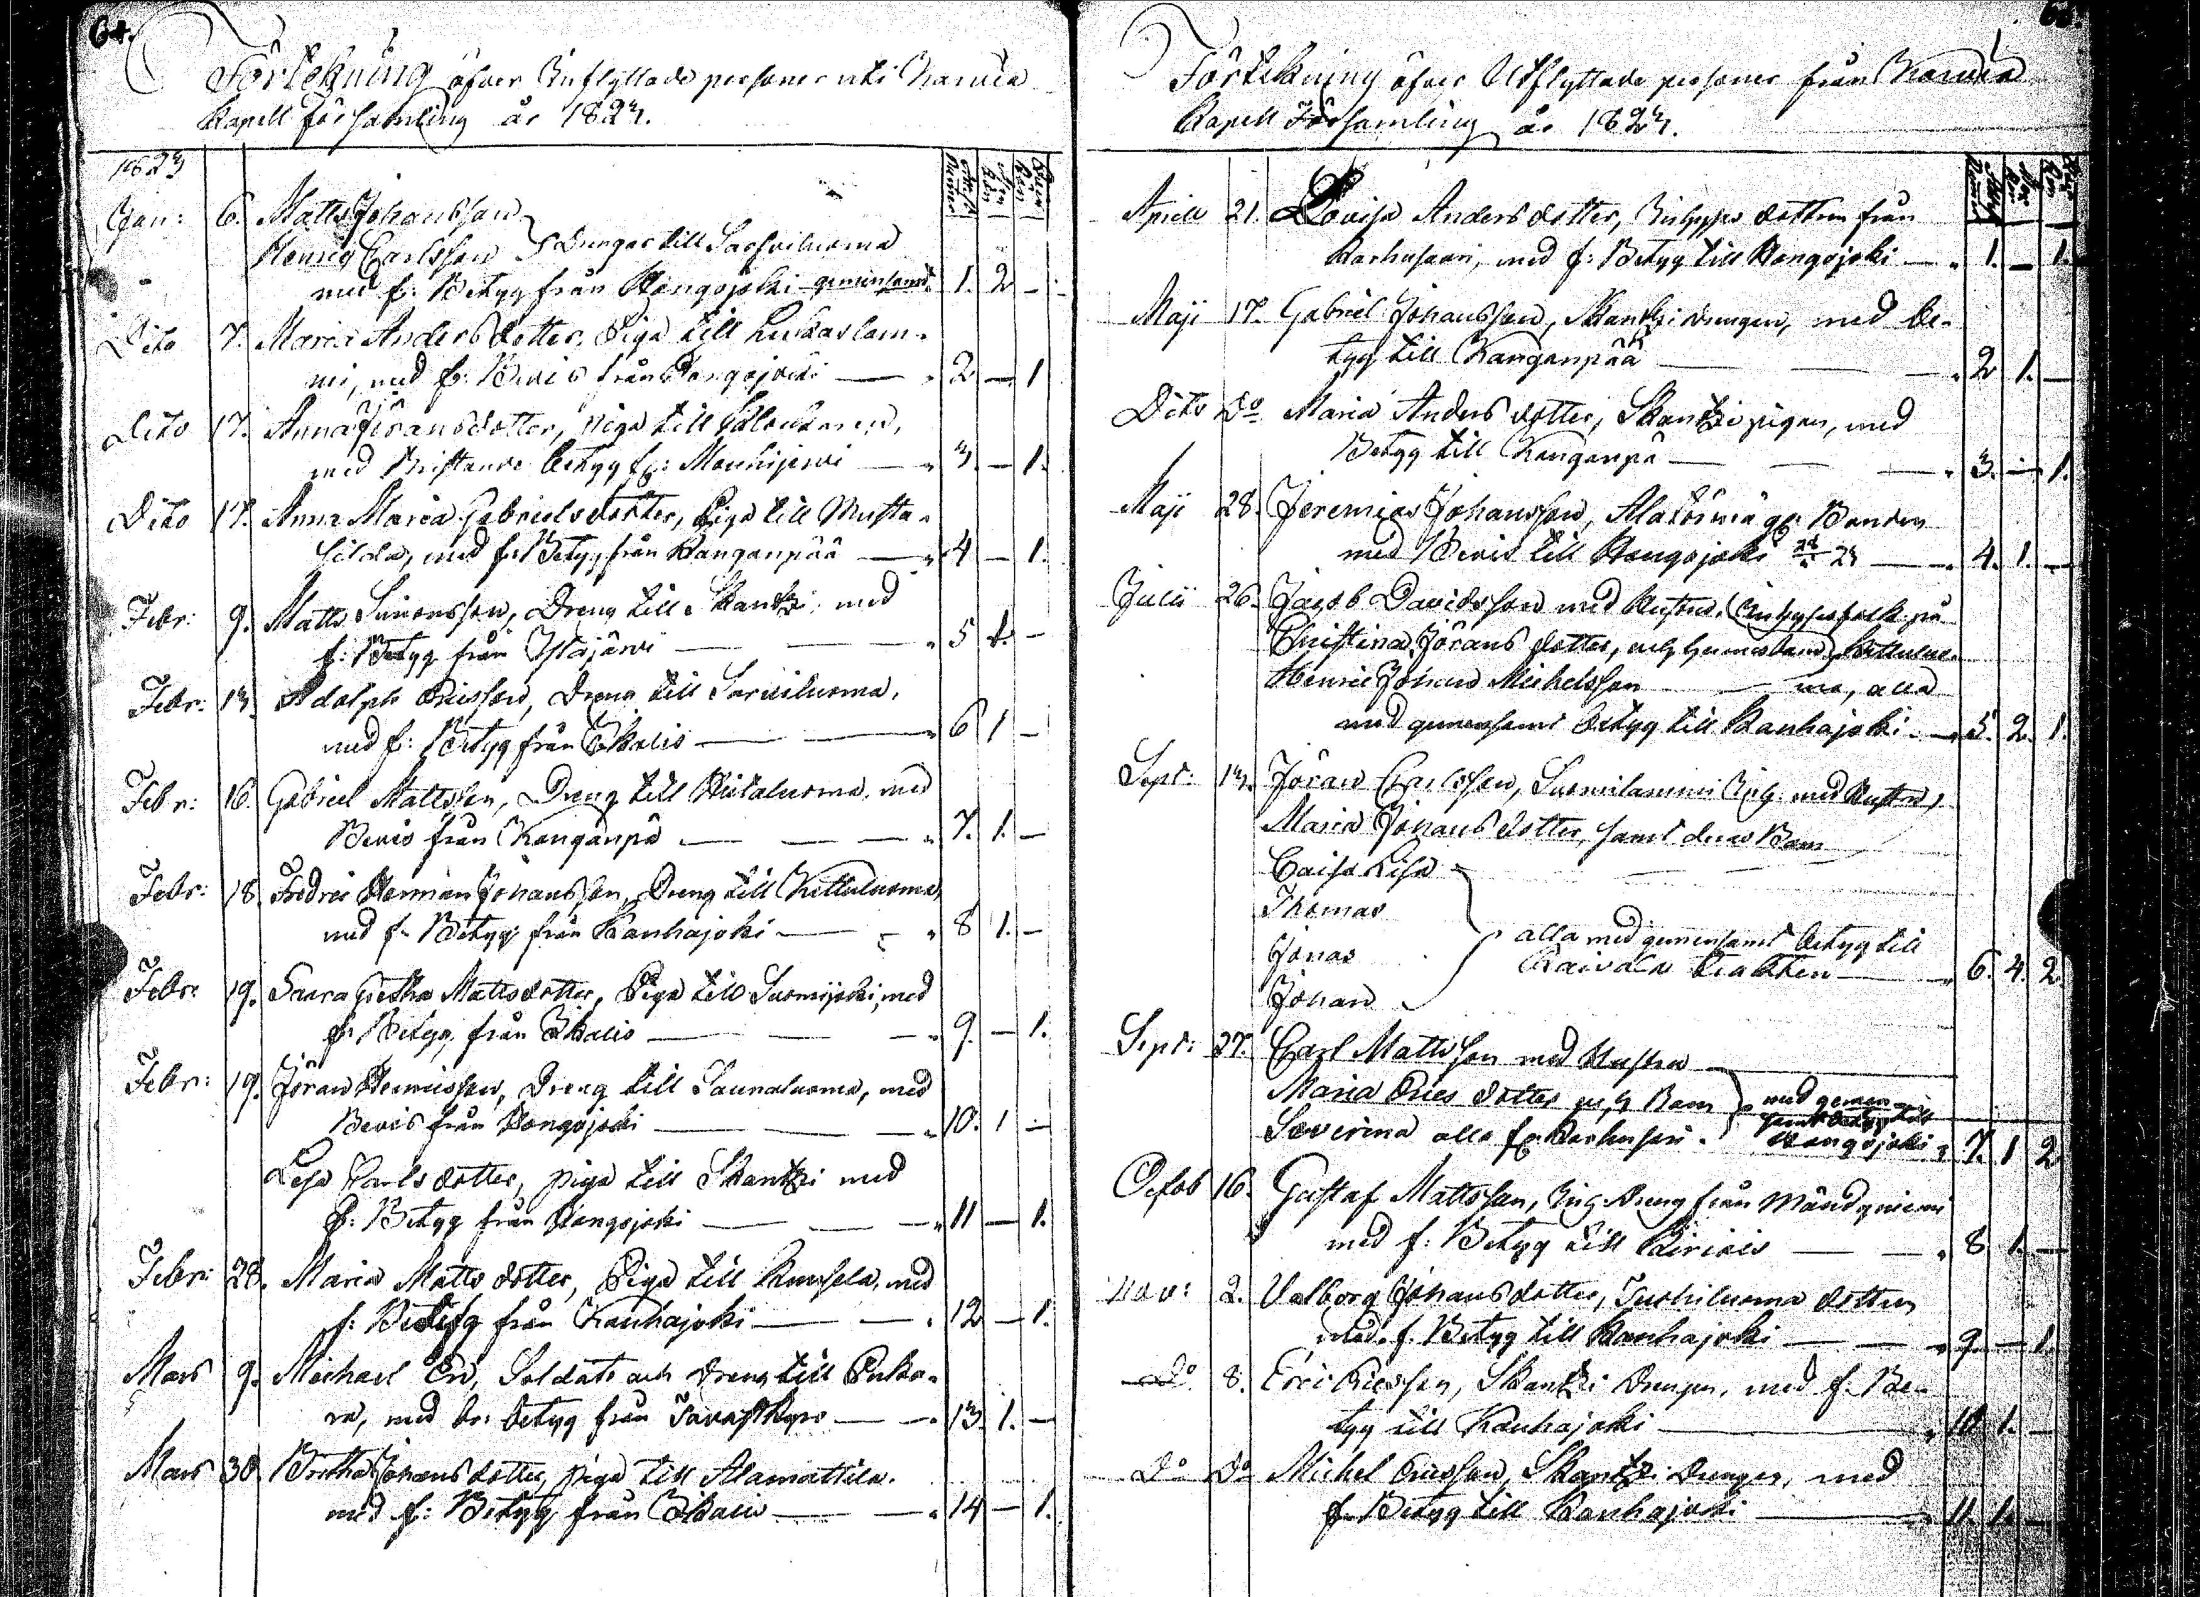 64.
Förtekning öfver Inflyttade personer uti Karvia
Kapell Församling år 1823.
1823
Jan: 6. Matts Johansson
Henric Carlsson Drengar till Sarviluoma
med f: Betyg från Hongojoki gemensamt 1. 2 -
Dito 7. Maria Andersdotter, Piga till Lukaslam-
mi, med fr: Bevis från Hongojocki — 2 — 1
Dito 17. Anna Jöransdotter, piga till
med Bristande betyg fr: Mouhijervi — 3 — 1.
Dito 17. Anna Maria Gabrielsdotter, Piga till Musta-
silda, med fr: Betyg från Kanganpää — 4 — 1.
Febr: 9. Matts Simonsson, Dreng till Skantzi, med
f: Betyg från — 5 1. -
Febr: 13. Adolph Ericsson, Dreng till Sarviluoma,
med f: Betyg från Ikalis — 6 1 -
Febr: 16. Gabriel Mattsson, Dreng till med
Bevis från Kanganpä — 7. 1. -
Febr: 18. Fredric Herman Johansson, Dreng till Kittuluoma,
med f: Betyg från Kauhajoki — 8 1. -
Febr: 19. Saara Gretha Mattsdotter, Piga till Suomijoki, med
f: Betyg från Ikalis — 9. — 1.
Febr: 19. Jöran Henricsson, Dreng till Saunaluoma, med
Bevis från Hongojocki — 10. 1 -
Lisa Carlsdotter, piga till Skantzi med
f: Betyg från Hongojoki — 11 — 1.
Febr: 28. Maria Matts dotter, Piga till med
f: Betyg från Kauhajoki — 12 — 1.
Mars 9. Michael Ero, Soldat och dreng till
ra, med betyg från Tavastkyro — 13. 1. -
Mars 30 Bretha Johansdotter, piga till Alamattila.
med f: Betyg från Ikalis — 14 — 1.
Förtekning öfver Utflyttade personer från Karvia
Kapell Församling år 1823.
Aprill 21. Lovisa Andersdotter, dottren från
Karhusaari, med f: Betyg till Hongojoki — 1. — 1.
Maji 17. Gabriel Johansson, Skantzi drengen, med be-
tyg till Kanganpää — 2 1. —
Dito Do Maria Andersdotter, Skantzi pigan, med
Betyg till Kanganpä — 3. — 1.
Maji 28. Jeremias Johansson, Bonden
med Bevis till Hongojoki — 4. 1. —
Julii 26. Jacob Davidsson med Hustru
Christina Jörans dotter, och Kittuluo-
Henric Johan Michelsson — ma, alla
med gemensamt betyg till Kauhajoki — 5. 2. 1.
Sept: 13. Jöran Carlsson, Suomilammi Inh: med Hustru
Maria Johansdotter, samt deras Barn
Caisa Lisa
Thomas
Jonas alla med gemensamt betyg till
Johan trakten — 6. 4. 2
Sept: 27. Carl Mattsson med Hustru
Maria Erics dotter och Barn med gemen-
Severina alla fr: Karhusari. samt betyg till Hongojoki 7. 1 2
Octob 16. Gustaf Mattsson, Inh: Dreng från Mändyniemi
med f: Betyg till — 8 1. —
Nov: 2. Valborg Johansdotter, dottren
med f. Betyg till Kauhajoki — 9. — 1.
Do 8. Eric Ericsson, Skantzi Drengen, med f: Be-
tyg till Kauhajoki — 10 1. —
Do Do Michel Ericsson, Skantzi Drengen, med
fr: Betyg till Kauhajoki — 11. 1. —